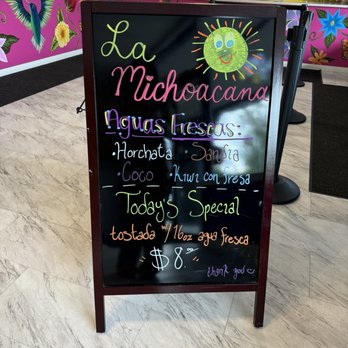 La
Michoacana
Aguas Frescas:
·Horchata ·Sandia
·Coco ·Kiwi con fresa
Today's Special
tostada w/ 16oz agua fresca
$8.
thank you